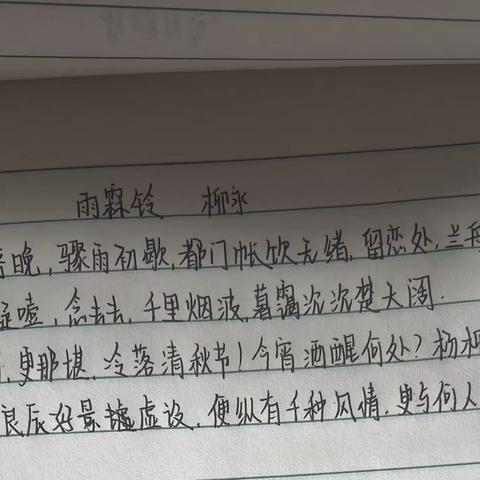 雨霖铃 柳永
晚,骤雨初歇,都门帐饮无绪,留恋处,兰
噎,念去去,千里烟波,暮霭沉沉楚大阔.
更那堪,冷落清秋节!今宵酒醒何处?杨柳
良辰好景虚设,便纵有千种风情,更与何人